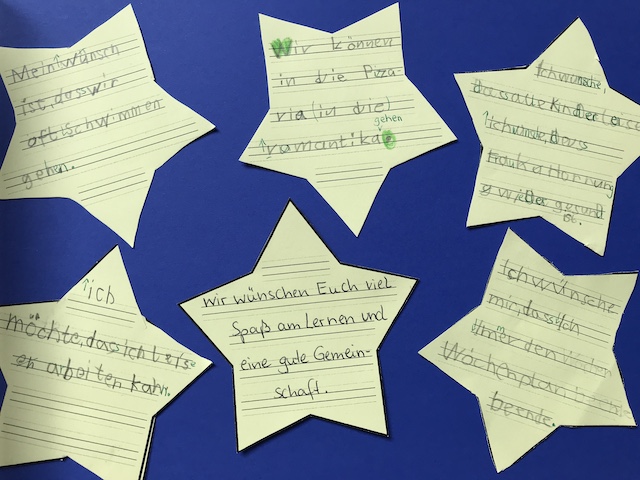 Mein Wunsch
ist, dass wir
oft schwimmen
gehen.
Wir können
in die Pizza-
ria (in die)
gehen
ramantika
Ich wünsche,
Dass alle Kinder
ich
gesund
ist.
ich
möchte, dass ich leise
en arbeiten kann.
Wir wünschen Euch viel
Spaß am Lernen und
eine gute Gemein-
schaft.
Ich wünsche
mir, dass ich
immer den
Wochenplan
beende.